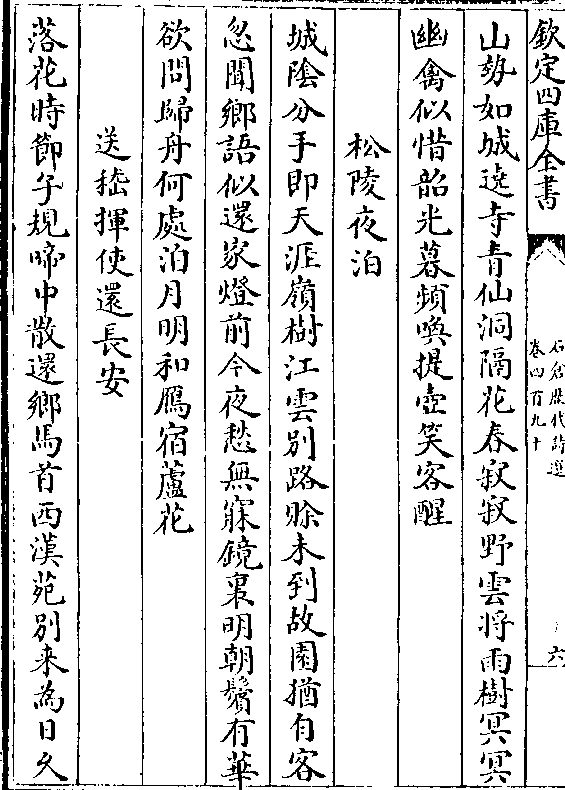 欽定四庫全書
石倉歷代詩選
卷四百九十
六
山勢如城遶寺青仙洞隔花春寂寂野雲将雨樹冥冥
幽禽似惜韶光暮頻喚提壺笑客醒
松陵夜泊
城陰分手即天涯嶺樹江雲别路賒未到故園猶自客
忽聞鄉語似還家燈前今夜愁無寐鏡裏明朝鬢有華
欲問歸舟何處泊月明和鴈宿蘆花
送嵇揮使還長安
落花時節子規啼中散還鄉馬首西漢苑别来為日久